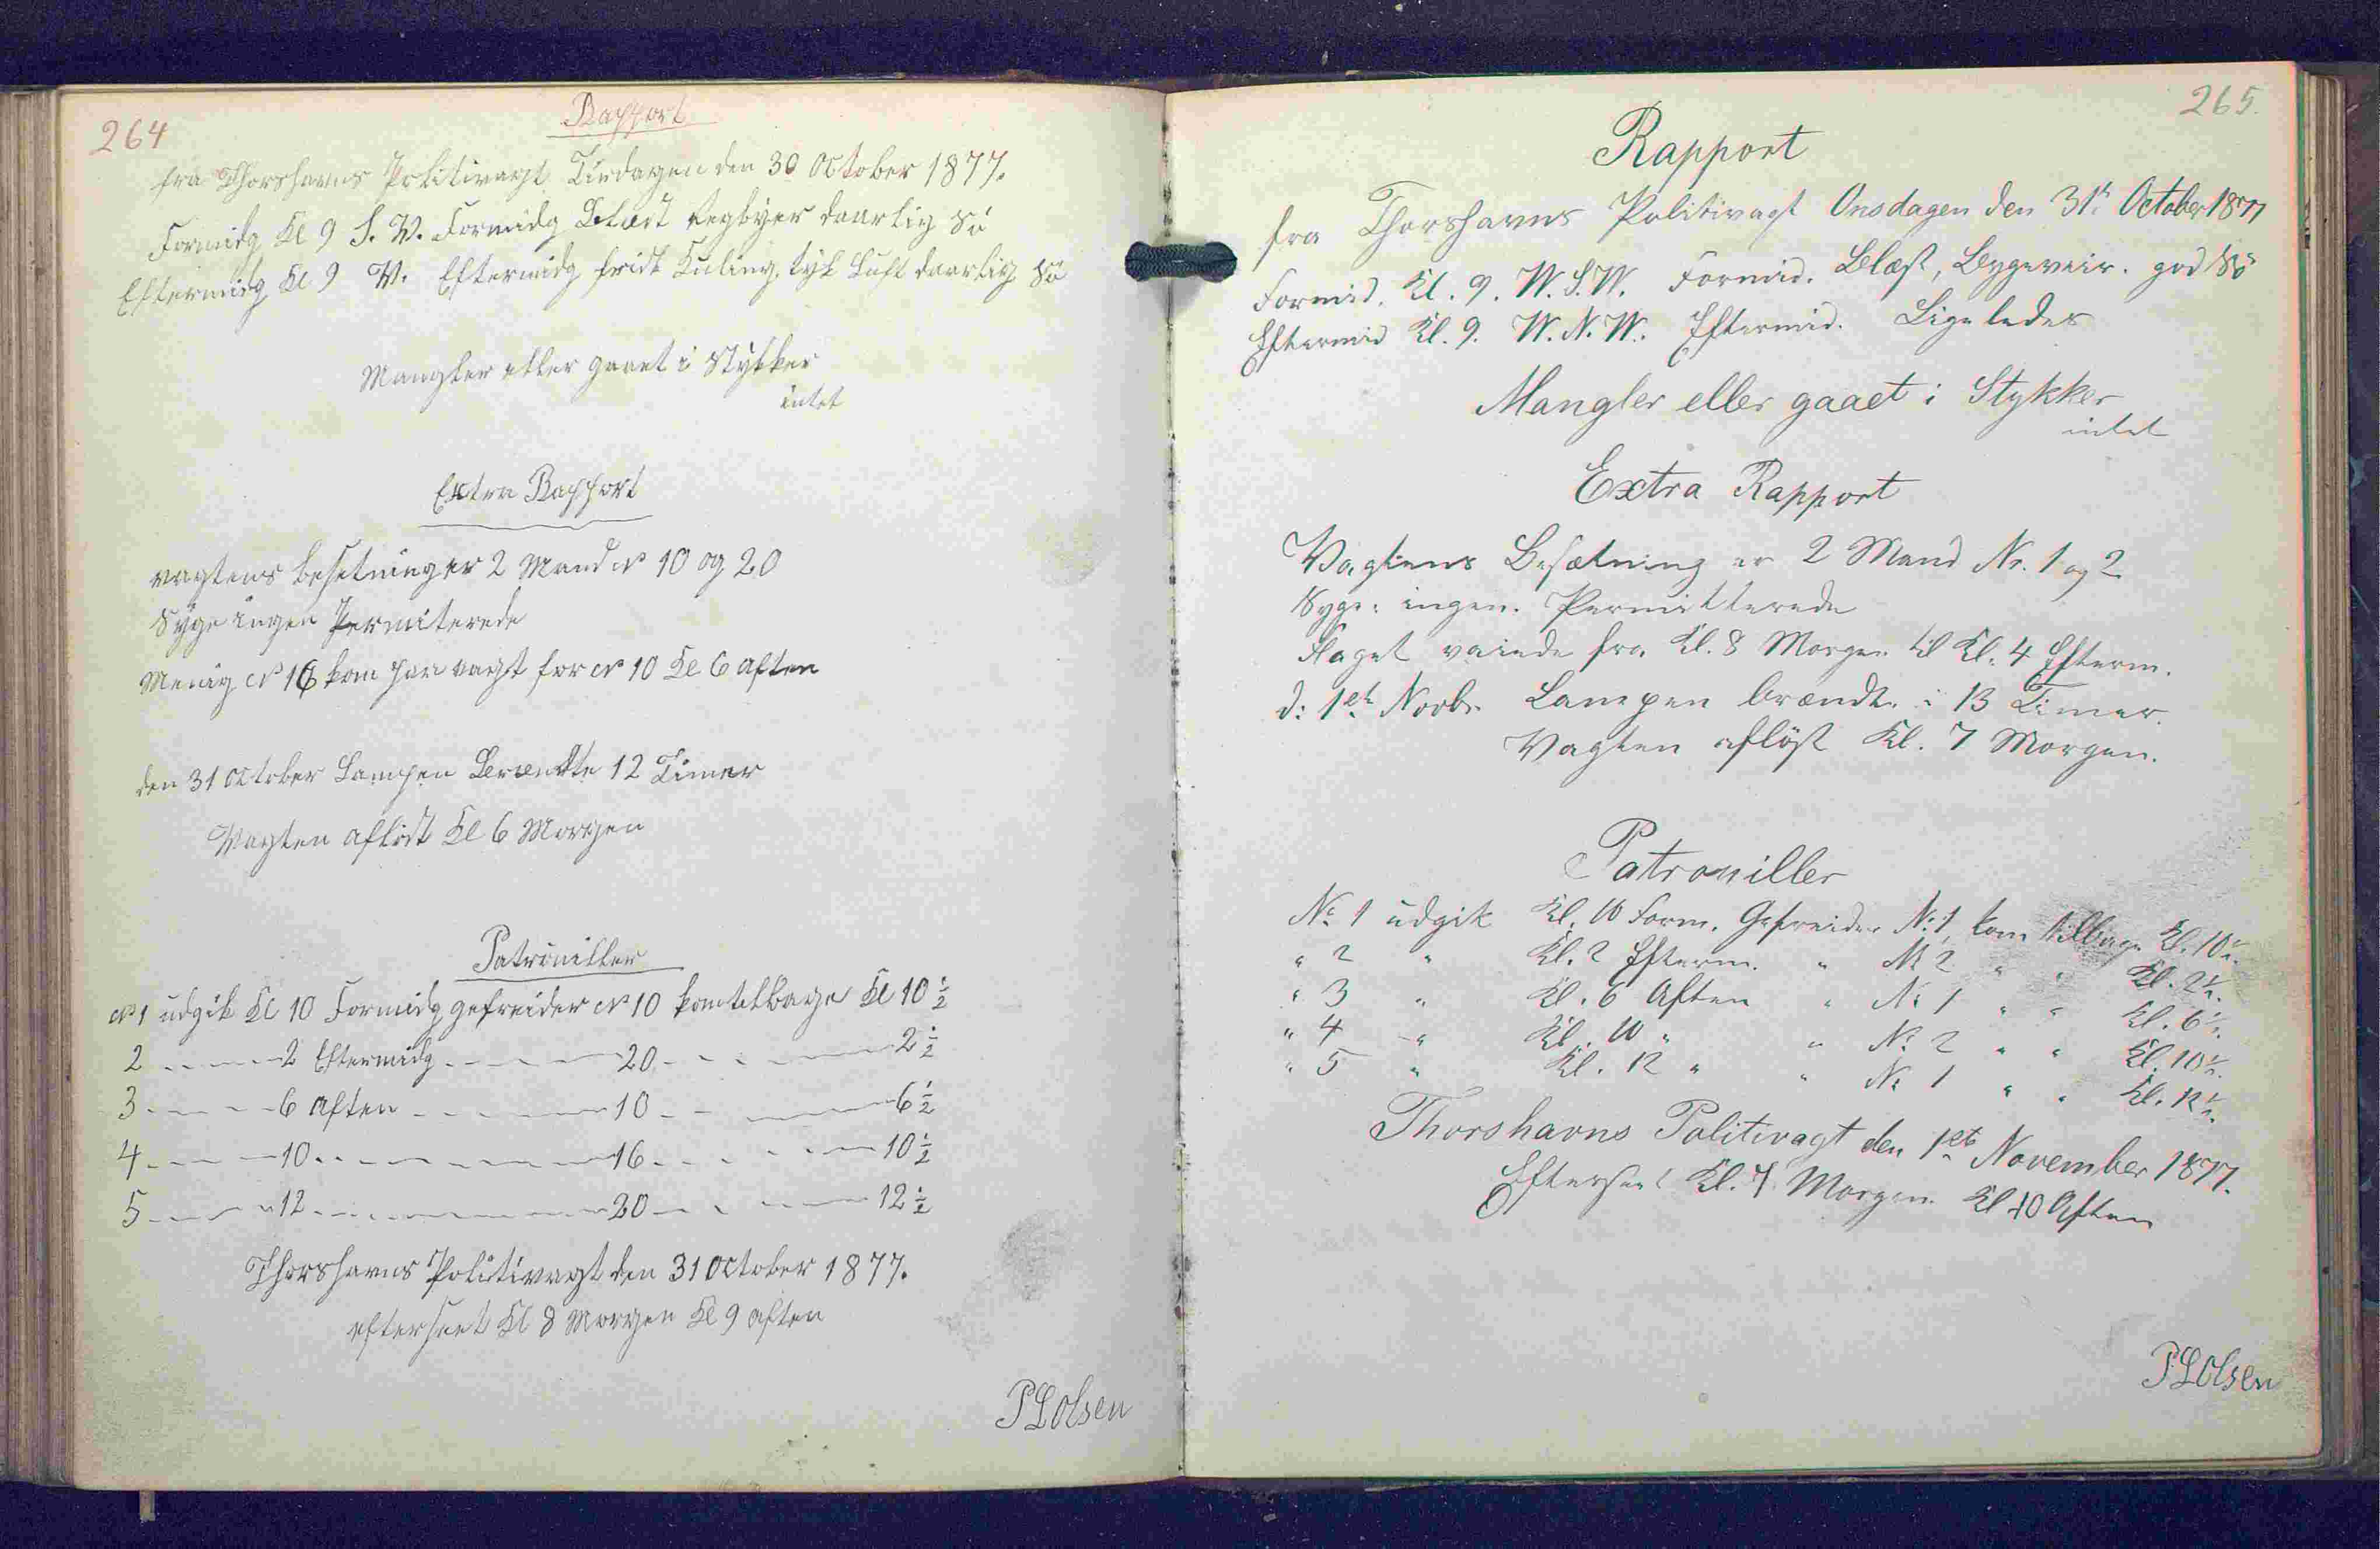 264
Rapport
fra Thorshavns Politivagt Tirdagen den 30 October 1877.
Formidg Kl 9 S. V. Formidg Blæst regbyer daarlig Sö
Eftermidg Kl 9 V. Eftermidg fridt Kuling, tyk Luft daarlig Sö
Mangler eller gaaet i Stykker
intet
Extra Rapport
vagtens besetninger 2 Mand № 10 og 20
Syge ingen Permiterede
Menig № 16 kom paa vagt for № 10 Kl 6 aften
den 31 October Lampen Brændte 12 Timer
Vagten aflöst Kl 6 Morgen
Patruiller
№ 1 udgik Kl 10 Formidg gefreider № 10 kom tilbage Kl 10 ½
2 - - - 2 Eftermidg - - - 20 - - - 2 ½
3 - - - 6 Aften - - - 10 - - - 6 ½
4 - - - 10 - - - 16 - - - 10 ½
5 - - - 12 - - - 20 - - - 12 ½
Thorshavns Politivagt den 31 October 1877.
efterseet Kl 8 Morgen Kl 9 aften
P L Olsen
265.
Rapport
fra Thorshavns Politivagt Onsdagen den 31t October 1877
Formid. Kl. 9. W. S. W. Formid. Blæst, Bygeveir. god Sö
Eftermid Kl. 9. W. N. W. Eftermid. Ligeledes
Mangler eller gaaet i Stykker
intet
Extra Rapport
Vagtens Besætning er 2 Mand Nr. 1 og 2
Syge: ingen. Permitterede
Flaget vaiede fra Kl. 8 Morgen til Kl. 4 Efterm.
d: 1st Novbr. Lampen brændte i 13 Timer.
Vagten aflöst Kl. 7 Morgen.
Patrouiller
No. 1 udgik Kl. 10 Form. Gefreider No. 1, kom tilbage Kl. 10½.
" 2 " Kl. 2 Efterm. " No 2 " " Kl. 2½.
" 3 " Kl. 6 Aften " No 1 " " Kl. 6½.
" 4 " Kl. 10 " " No. 2 " " Kl. 10½.
" 5 " Kl. 12 " " No 1 " " Kl. 12½.
Thorshavns Politivagt den 1st November 1877.
Efterseet Kl. 7 Morgen Kl 10 Aften
P L Olsen